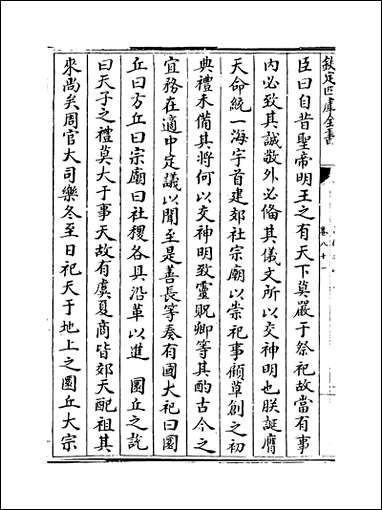 欽定四庫全書
卷八十一
臣曰自昔聖帝明王之有天下莫嚴于祭祀故當有事
内必致其誠敬外必偹其儀文所以交神明也朕誕膺
天命統一海宇首建郊社宗廟以崇祀事顧草創之初
典禮未備其將何以交神明致靈貺卿等其酌古今之
宜務在適中定議以聞至是善長等奏有國大祀曰圜
丘曰方丘曰宗廟曰社稷各具沿革以進 圜丘之說
曰天子之禮莫大于事天故有虞夏商皆郊天配祖其
來尚矣周官大司樂冬至日祀天于地上之圜丘大宗